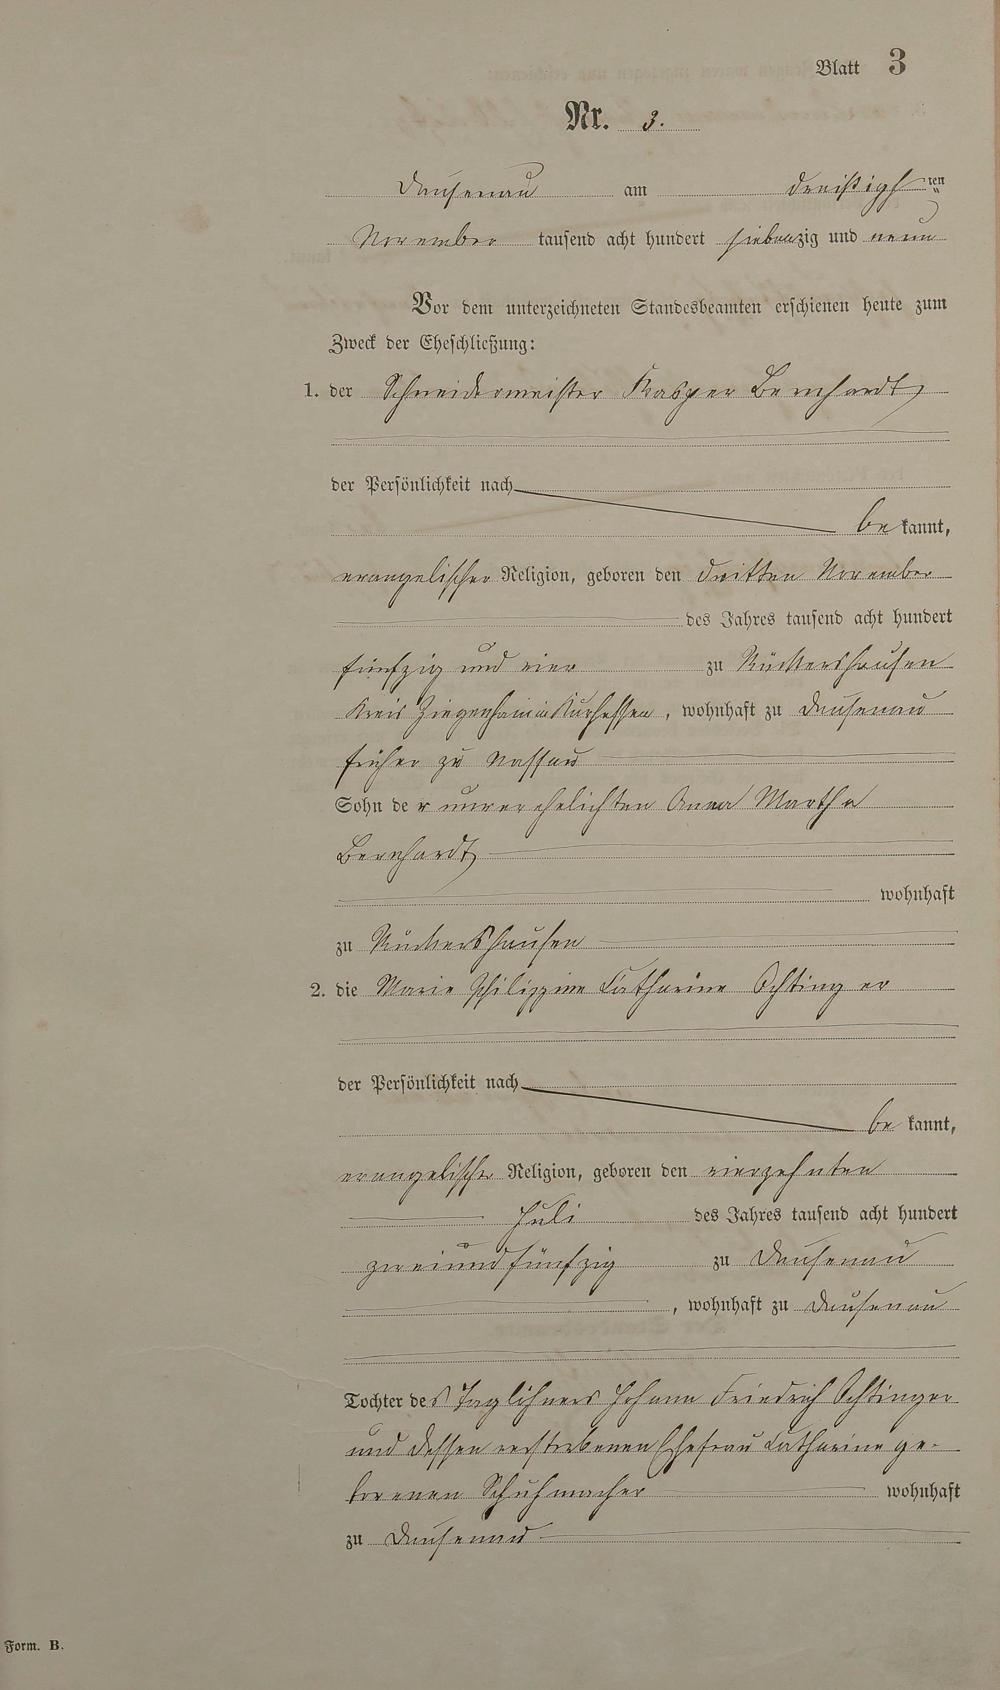 Blatt 3
Nr. 3.
Dausenau am dreißigsten
November tausend acht hundert siebenzig und neun
Vor dem unterzeichneten Standesbeamten erschienen heute zum
Zweck der Eheschließung:
1. der Schneidermeister Kasper Bernhardt
der Persönlichkeit nach
be kannt,
evangelischer Religion, geboren den dritten November
des Jahres tausend acht hundert
fünfzig und vier zu Rückershausen
Kreis Ziegenhain in Kurhessen, wohnhaft zu Dausenau
früher zu Nassau
Sohn der unverehelichten Anna Martha
Bernhardt
wohnhaft
zu Rückershausen
2. die Marie Philippine Catharine Ochtinger
der Persönlichkeit nach
be kannt,
evangelischer Religion, geboren den vierzehnten
Juli des Jahres tausend acht hundert
zweiundfünfzig zu Dausenau
, wohnhaft zu Dausenau
Tochter des Taglöhners Johann Friedrich Ochtinger
und dessen verstorbenen Ehefrau Catharine ge-
borenen Schuhmacher wohnhaft
zu Dausenau
Form. B.